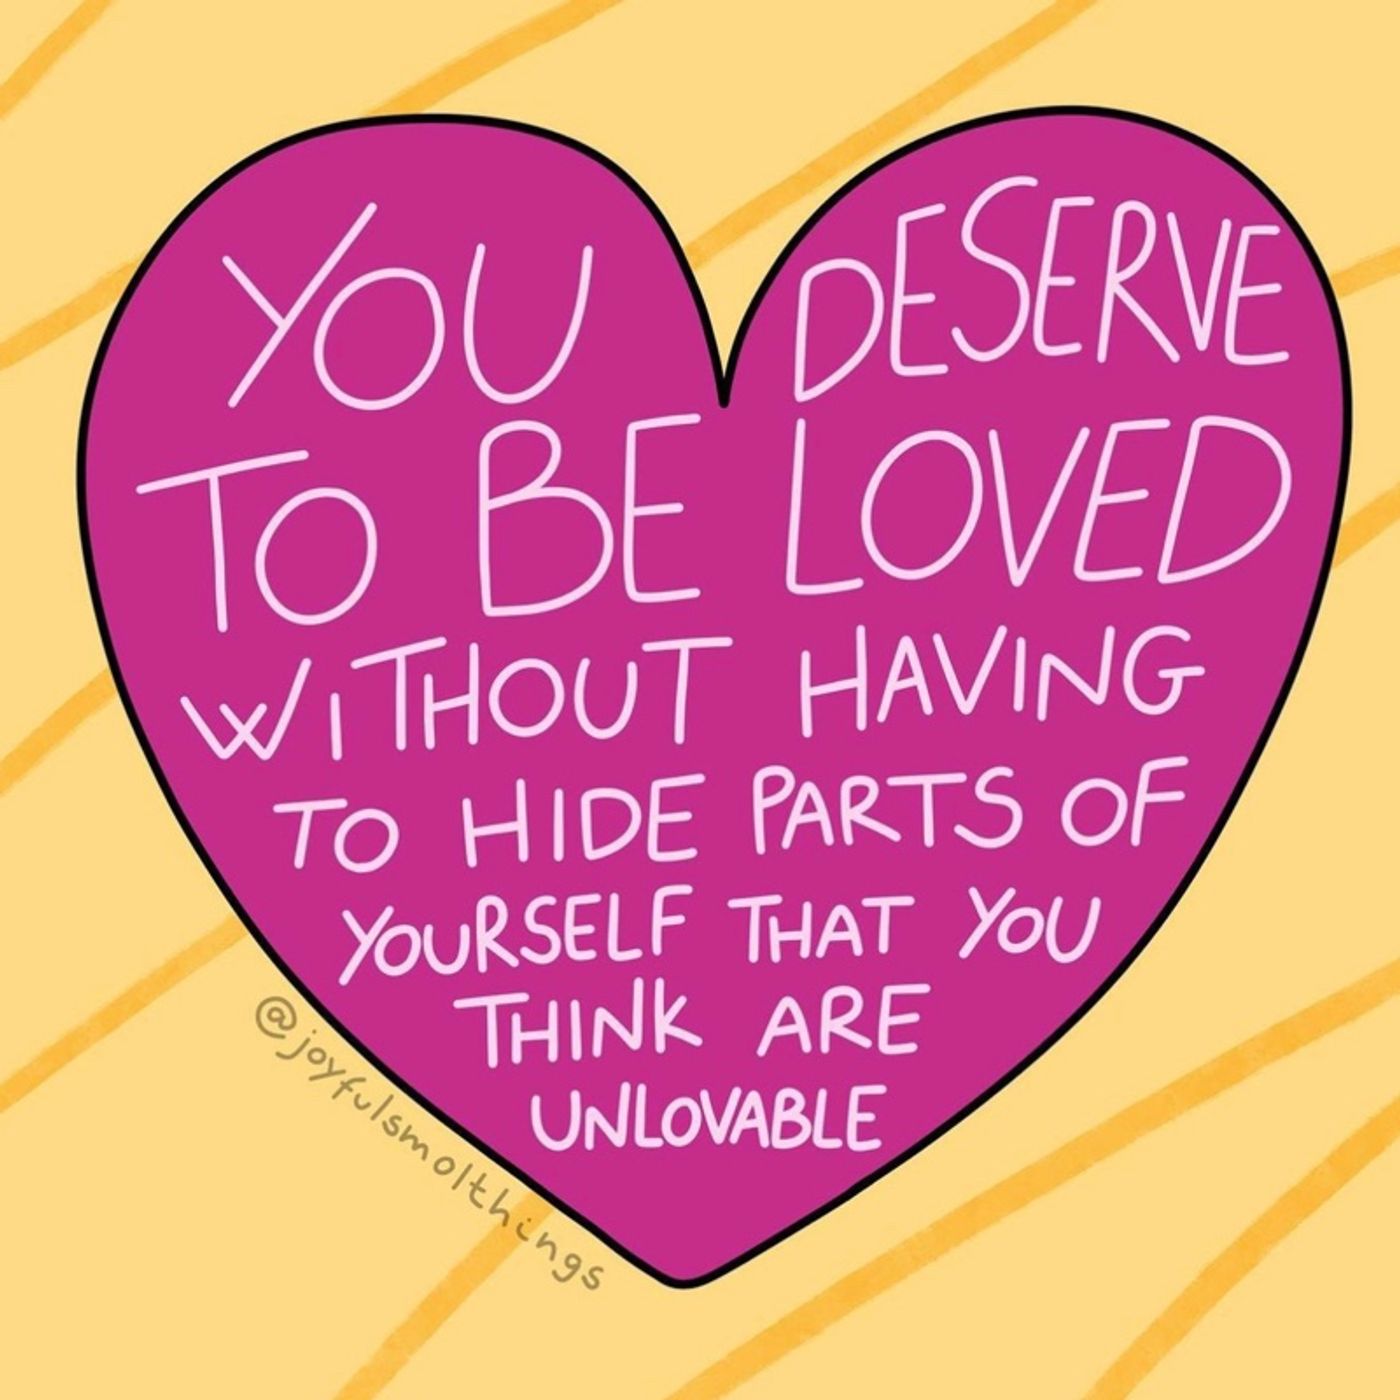 YOU DESERVE
TO BE LOVED
WITHOUT HAVING
TO HIDE PARTS OF
YOURSELF THAT YOU
THINK ARE
UNLOVABLE
@joyfulsmolthings